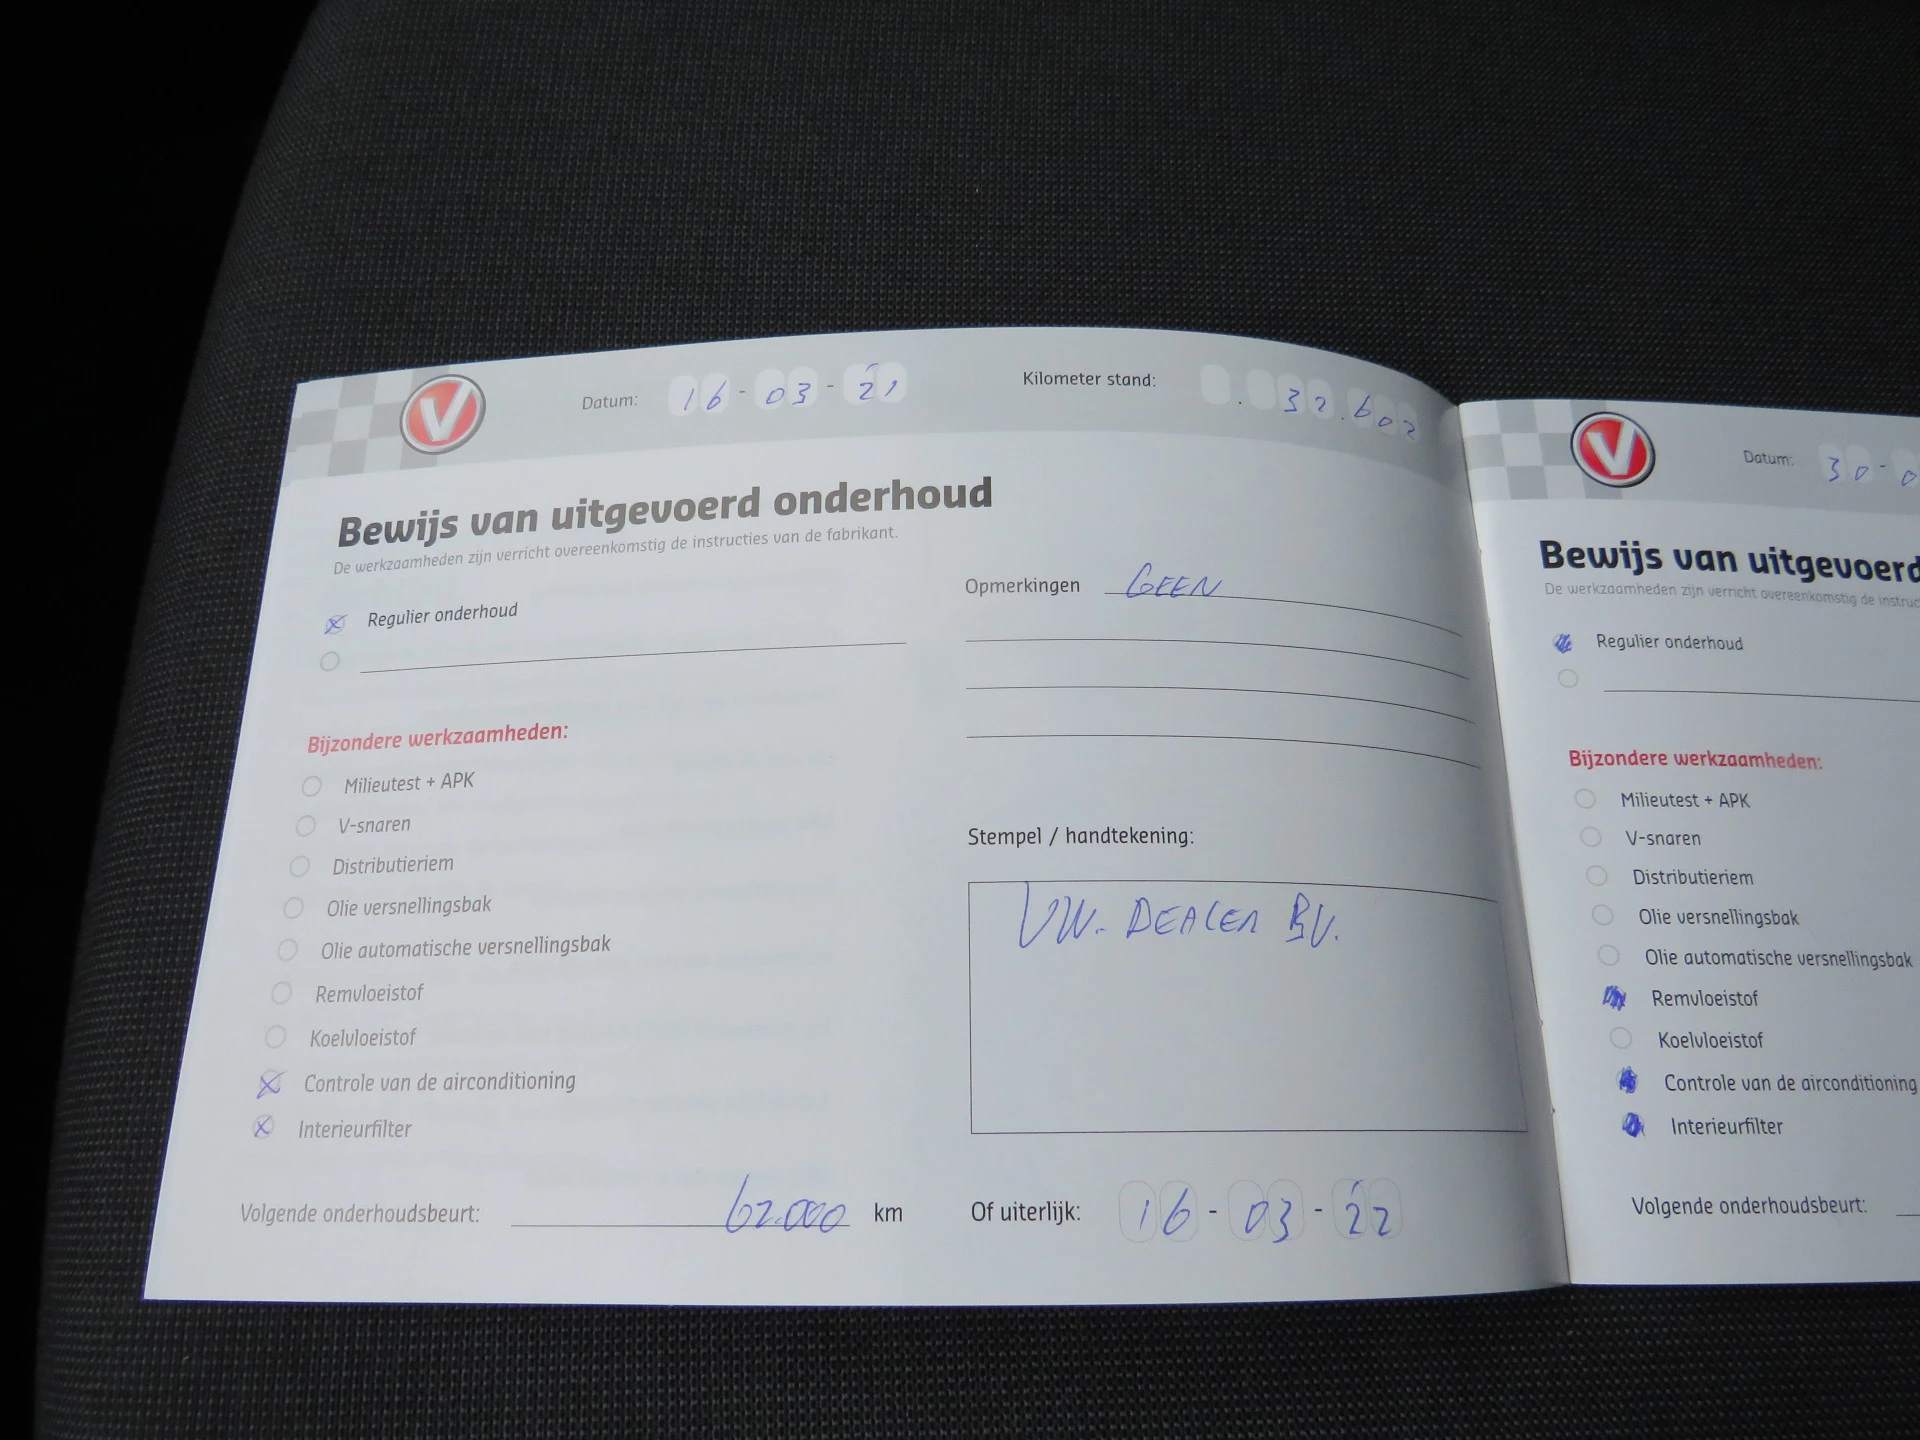 V
Datum: 16-03-21
Kilometer stand: . 32.602
Bewijs van uitgevoerd onderhoud
De werkzaamheden zijn verricht overeenkomstig de instructies van de fabrikant.
Regulier onderhoud
Opmerkingen GEEN
Bijzondere werkzaamheden:
Milieutest + APK
V-snaren
Distributieriem
Olie versnellingsbak
Olie automatische versnellingsbak
Remvloeistof
Koelvloeistof
Controle van de airconditioning
Interieurfilter
Stempel / handtekening:
VW. DEALER BV.
Volgende onderhoudsbeurt: 62.000 km
Of uiterlijk: 16-03-22
V
Datum: 30-0
Bewijs van uitgevoerd
De werkzaamheden zijn verricht overeenkomstig de instruc
Regulier onderhoud
Bijzondere werkzaamheden:
Milieutest + APK
V-snaren
Distributieriem
Olie versnellingsbak
Olie automatische versnellingsbak
Remvloeistof
Koelvloeistof
Controle van de airconditioning
Interieurfilter
Volgende onderhoudsbeurt: